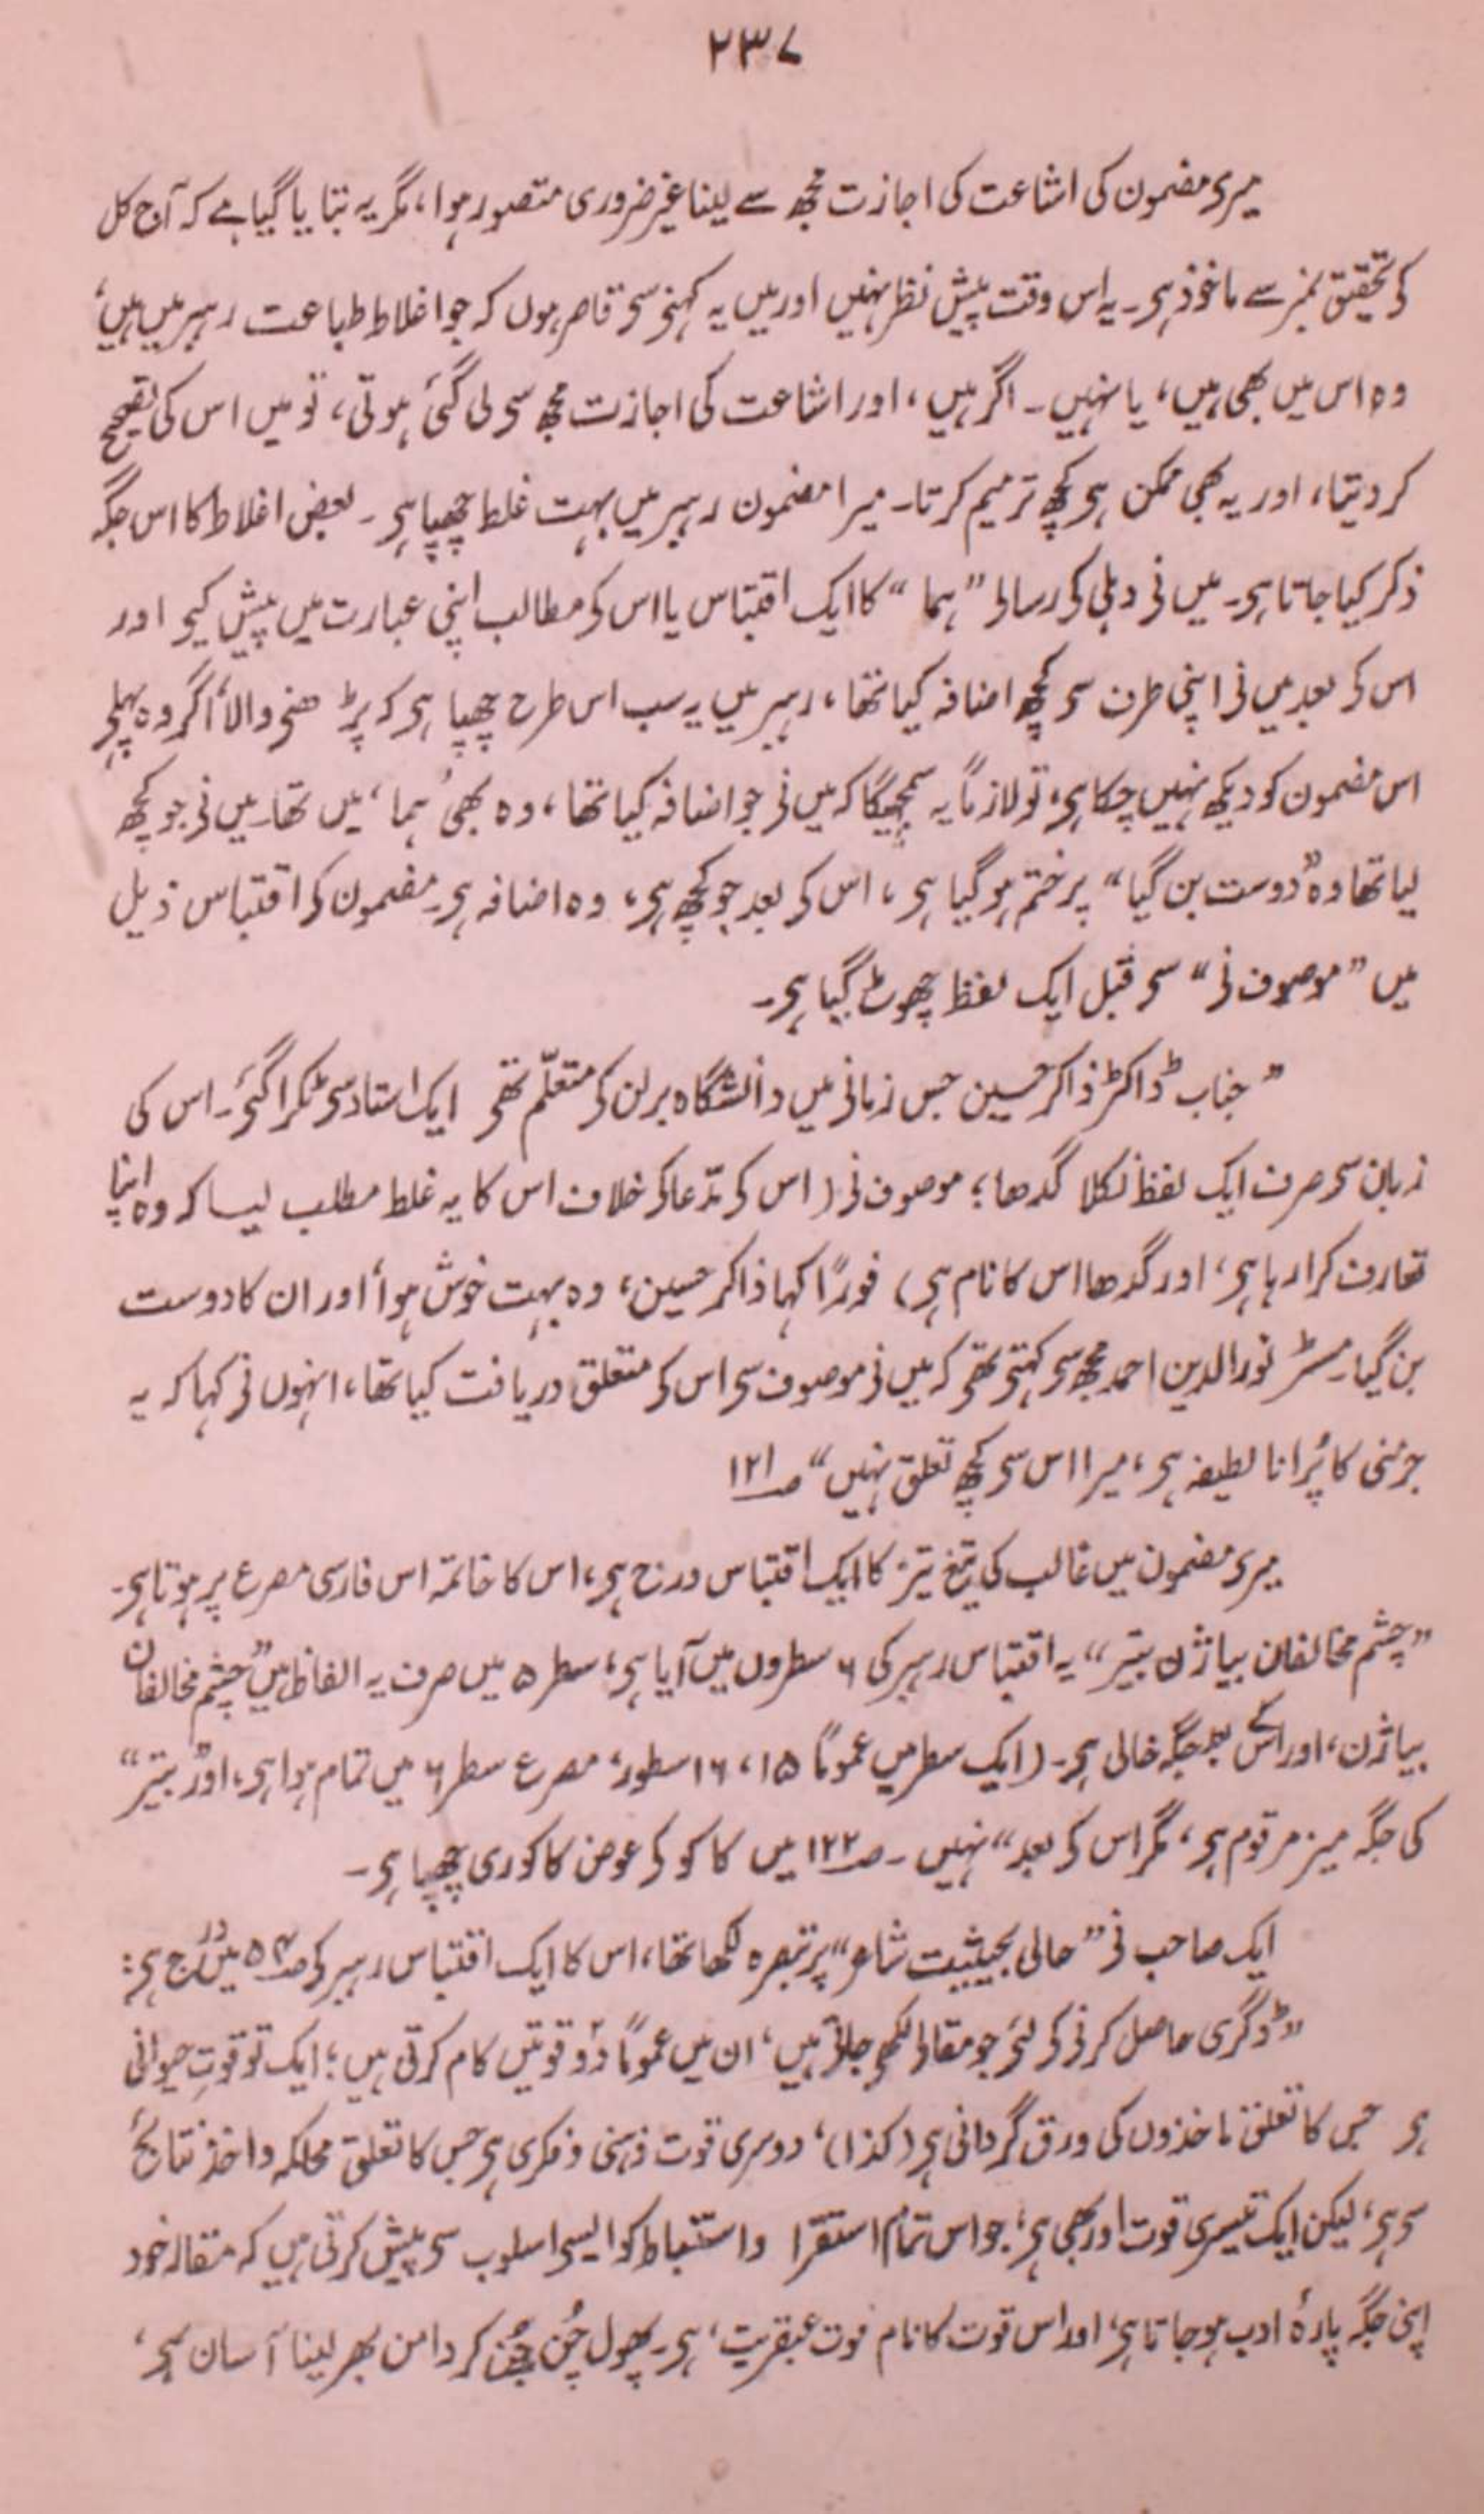 ۲۳۷
میری مضمون کی اشاعت کی اجازت مجھ سے لینا غیر ضروری متصور ہوا، مگر یہ بتایا گیا ہے کہ آج کل
کی تحقیق نمبر سے ماخوذ ہی۔ یہ اس وقت پیش نظر نہیں اور میں یہ کہنی سی قاصر ہوں کہ جو اغلاط طباعت رہبر میں ہیں،
وہ اس میں بھی ہیں، یا نہیں۔ اگر ہیں، اور اشاعت کی اجازت مجھ سی لی گئی ہوتی، تو میں اس کی تصحیح
کر دیتا، اور یہ بھی ممکن ہی کچھ ترمیم کرتا۔ میرا مضمون رہبر میں بہت غلط چھپا ہی۔ بعض اغلاط کا اس جگہ
ذکر کیا جاتا ہی۔ میں نی دہلی کی رسالی ”ہما“ کا ایک اقتباس یا اس کی مطالب اپنی عبارت میں پیش کیی اور
اس کی بعد میں نی اپنی طرف سی کچھ اضافہ کیا تھا، رہبر میں یہ سب اس طرح چھپا ہی کہ پڑھنی والا اگر وہ پہلی
اس مضمون کو دیکھ نہیں چکا ہی، تو لازماً یہ سمجھیگا کہ میں نی جو اضافہ کیا تھا، وہ بھی ’ہما‘ میں تھا۔ میں نی جو کچھ
لیا تھا وہ ”دوست بن گیا“ پر ختم ہو گیا ہی، اس کی بعد جو کچھ ہی، وہ اضافہ ہی۔ مضمون کی اقتباس ذیل
میں ”موصوف نی“ سی قبل ایک لفظ چھوٹ گیا ہی۔
”جناب ڈاکٹر ذاکر حسین جس زمانی میں دانشگاہ برلن کی متعلّم تھی ایک استاد سی ٹکرا گئی۔ اس کی
زبان سی صرف ایک لفظ نکلا گدھا؛ موصوف نی (اس کی مدّعا کی خلاف اس کا یہ غلط مطلب لیا کہ وہ اپنا
تعارف کرا رہا ہی، اور گدھا اس کا نام ہی) فورًا کہا ذاکر حسین، وہ بہت خوش ہوا اور ان کا دوست
بن گیا۔ مسٹر نور الدین احمد مجھ سی کہتی تھی کہ میں نی موصوف سی اس کی متعلق دریافت کیا تھا، انہوں نی کہا کہ یہ
جرمنی کا پُرانا لطیفہ ہی، میرا اس سی کچھ تعلق نہیں“ صـ۱۲۱
میری مضمون میں غالب کی تیغ تیز کا ایک اقتباس درج ہی، اس کا خاتمہ اس فارسی مصرع پر ہوتا ہی۔
”چشم مخالفان بیاژن بتیر“ یہ اقتباس رہبر کی ۶ سطروں میں آیا ہی، سطر ۵ میں صرف یہ الفاظ ہیں ”چشم مخالفان
بیاژن، اور اس کے بعد جگہ خالی ہی۔ (ایک سطر میں عمومًا ۱۵، ۱۶ سطور، مصرع سطر ۶ میں تمام ہوا ہی، اور ”بتیر“
کی جگہ میز مرقوم ہی، مگر اس کی بعد“ نہیں۔ صـ۱۲۲ میں کاکو کی عوض کاکوری چھپا ہی۔
ایک صاحب نی ”حالی بحیثیت شاعر“ پر تبصرہ لکھا تھا، اس کا ایک اقتباس رہبر کی صـ۵۴ میں درج ہی:
”ڈگری حاصل کرنی کی لئی جو مقالی لکھی جاتی ہیں، ان میں عمومًا دو قوتیں کام کرتی ہیں؛ ایک تو قوتِ حیوانی
ہی جس کا تعلق ماخذوں کی ورق گردانی ہی (کذا)، دوسری قوت ذہنی و فکری ہی جس کا تعلق محاکمہ و اخذ نتائج
سی ہی، لیکن ایک تیسری قوت اور بھی ہی، جو اس تمام استقرا واستنباط کو ایسی اسلوب سی پیش کرتی ہیں کہ مقالہ خود
اپنی جگہ پارۂ ادب ہو جاتا ہی، اور اس قوت کا نام قوت عبقریت، ہی۔ پھول چُن چُن کر دامن بھر لینا آسان ہی،